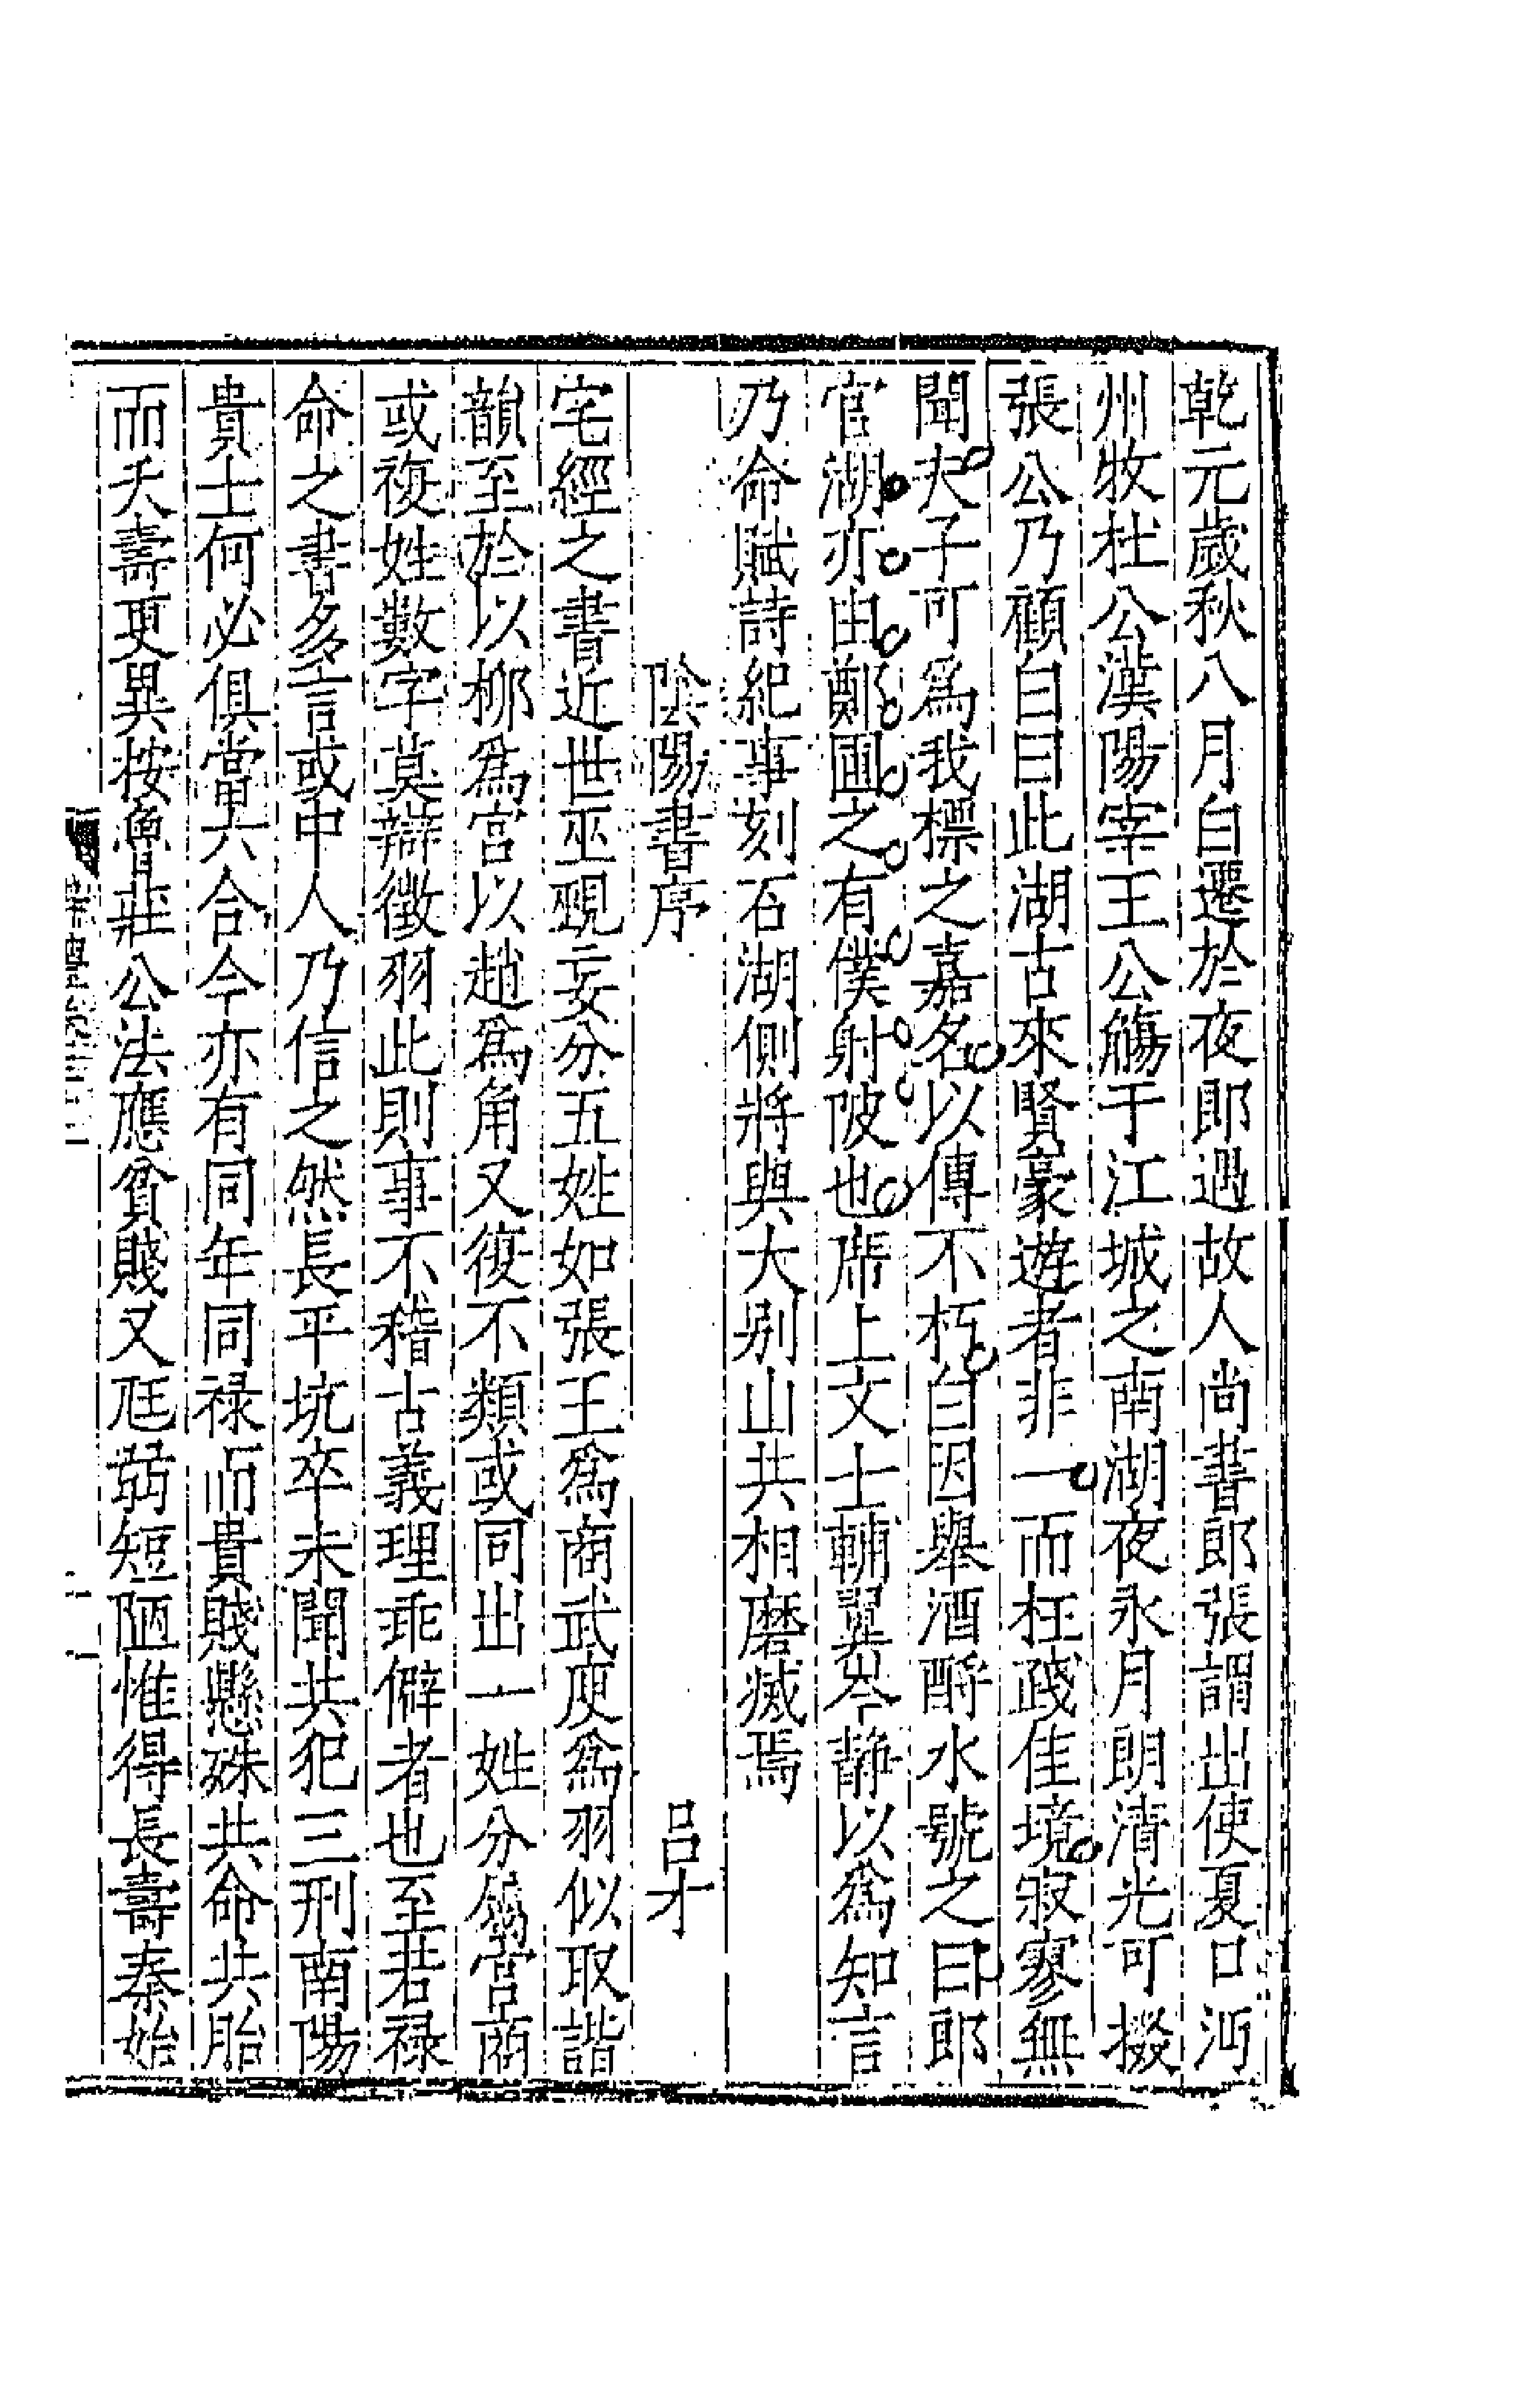 乾元歲秋八月白遷於夜郎遇故人尚書郎張謂出使夏口沔
州牧杜公漢陽宰王公觴于江城之南湖夜永月朗清光可掇
張公乃顧白曰此湖古來賢豪遊者非一而枉踐佳境寂寥無
聞夫子可爲我標之嘉名以傳不朽白因舉酒酹水號之曰郎
官湖亦由鄭圃之有僕射陂也席上文士輔翼岑靜以爲知言
乃命賦詩紀事刻石湖側將與大別山共相磨滅焉
陰陽書序 呂才
宅經之書近世巫覡妄分五姓如張王爲商武庾爲羽似取諧
韻至於以柳爲宮以趙爲角又復不類或同出一姓分屬宮商
或複姓數字莫辯徵羽此則事不稽古義理乖僻者也至若祿
命之書多言或中人乃信之然長平坑卒未聞共犯三刑南陽
貴士何必俱當六合今亦有同年同祿而貴賤懸殊共命共胎
而夭壽更異按魯莊公法應貧賤又尫弱短陋惟得長壽秦始